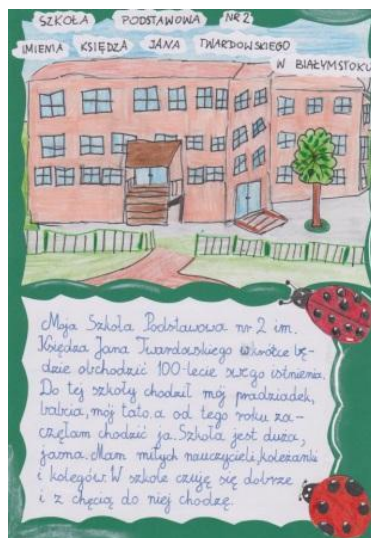 SZKOŁA PODSTAWOWA NR 2
IMIENIA KSIĘDZA JANA TWARDOWSKIEGO
W BIAŁYMSTOKU
Moja Szkoła Podstawowa nr 2 im.
Księdza Jana Twardowskiego wkrótce bę-
dzie obchodzić 100-lecie swego istnienia.
Do tej szkoły chodził mój pradziadek,
babcia, mój tato, a od tego roku za-
częłam chodzić ja. Szkoła jest duża,
jasna. Mam miłych nauczycieli, koleżanki
i kolegów. W szkole czuję się dobrze
i z chęcią do niej chodzę.